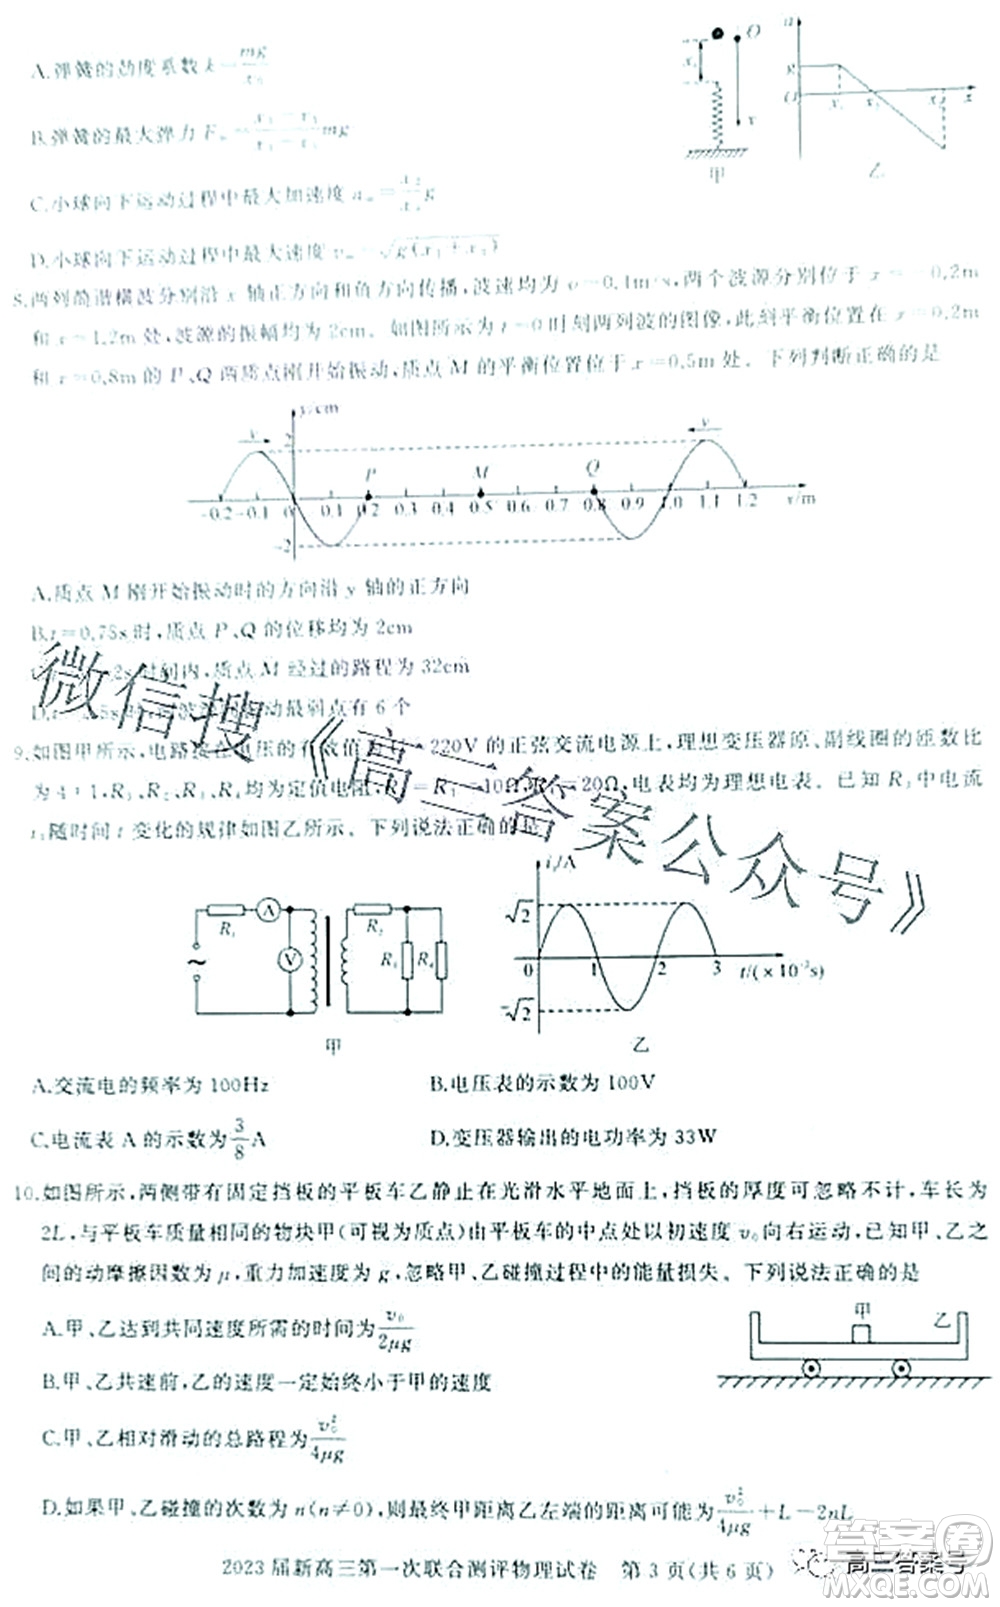 A.弹簧的劲度系数k=mg/x₀
B.弹簧的最大弹力F mg
C.小球向下运动过程中最大加速度aₘ= g
D.小球向下运动过程中最大速度vₘ=
O
x
甲
a
g
O
x
乙
8.两列简谐横波分别沿x轴正方向和负方向传播,波速均为v=0.1m/s,两个波源分别位于x=-0.2m
和x=1.2m处,波源的振幅均为2cm。如图所示为t=0时刻两列波的图像,此刻平衡位置在x=0.2m
和x=0.8m的P、Q两质点刚开始振动,质点M的平衡位置位于x=0.5m处。下列判断正确的是
y/cm
v
v
2
P
M
Q
-0.2 -0.1 0 0.1 0.2 0.3 0.4 0.5 0.6 0.7 0.8 0.9 1.0 1.1 1.2 x/m
-2
A.质点M刚开始振动时的方向沿y轴的正方向
B.t=0.75s时,质点P、Q的位移均为2cm
时间内,质点M经过的路程为32cm
动最弱点有6个
微信搜《高三答案公众号》
9.如图甲所示,电路接在电压的有效值 220V的正弦交流电源上,理想变压器原、副线圈的匝数比
为4∶1,R₁、R₂、R₃、R₄均为定值电阻, 10Ω, 20Ω,电表均为理想电表。已知R₃中电流
i₃随时间t变化的规律如图乙所示。下列说法正确的是
R₁
A
V
R₂
R₃
R₄
~
甲
i₃/A
√2
-√2
0 1 2 3 t/(×10⁻²s)
乙
A.交流电的频率为100Hz B.电压表的示数为100V
C.电流表A的示数为3/8A D.变压器输出的电功率为33W
10.如图所示,两侧带有固定挡板的平板车乙静止在光滑水平地面上,挡板的厚度可忽略不计,车长为
2L,与平板车质量相同的物块甲(可视为质点)由平板车的中点处以初速度v₀向右运动,已知甲、乙之
间的动摩擦因数为μ,重力加速度为g,忽略甲、乙碰撞过程中的能量损失。下列说法正确的是
A.甲、乙达到共同速度所需的时间为v₀/2μg
甲
乙
B.甲、乙共速前,乙的速度一定始终小于甲的速度
C.甲、乙相对滑动的总路程为v₀²/4μg
D.如果甲、乙碰撞的次数为n(n≠0),则最终甲距离乙左端的距离可能为v₀²/4μg+L-2nL
2023届新高三第一次联合测评物理试卷 第3页(共6页)
高三答案号
答案圈
MXQE.COM